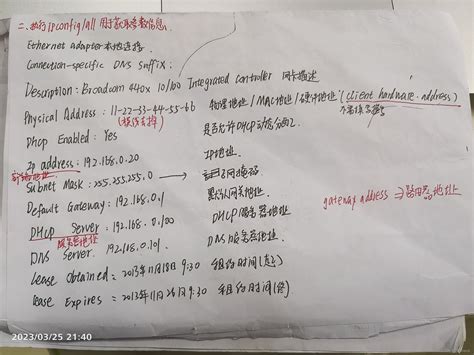 二、执行ipconfig/all 用于获取参数信息.
Ethernet adapter本地连接:
Connection-specific DNS Suffix:
Description: Broadcom 440x 10/100 Integrated controller 网卡描述
Physical Address: 11-22-33-44-55-66 物理地址/MAC地址/硬件地址 (client hardware address)
Dhcp Enabled: Yes 是否允许DHCP动态分配
Ip address: 192.168.0.20 IP地址
Subnet Mask: 255.255.255.0 子网掩码
Default Gateway: 192.168.0.1 默认网关地址
gateway address ⇒路由器地址
DHCP Server: 192.168.0.100 DHCP服务器地址
服务器地址
DNS Server: 192.168.0.101 DNS服务器地址.
Lease Obtained: =2013年11月18日 9:30 租约时间(起)
Lease Expires = 2013年11月26日9:30 租约时间(终)
2023/03/25 21:40